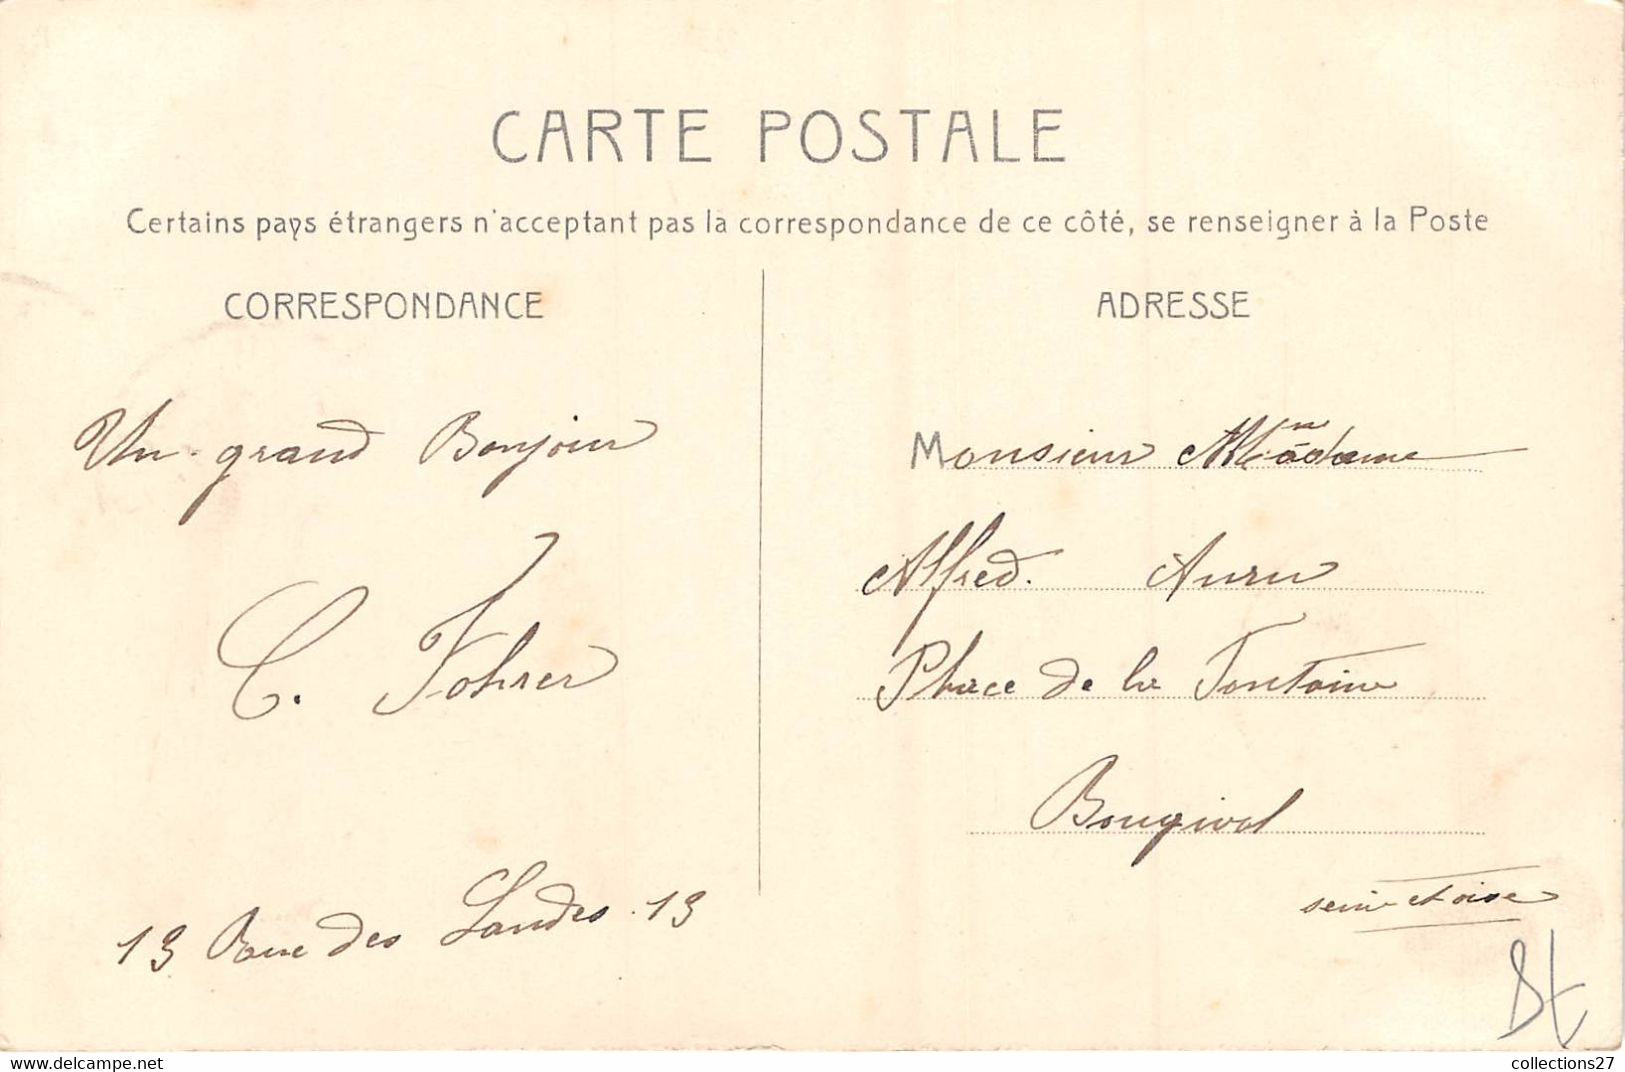 CARTE POSTALE
Certains pays étrangers n'acceptant pas la correspondance de ce côté, se renseigner à la Poste
CORRESPONDANCE
Un grand Bonjour
C. Fohrer
13 Rue des Landes . 13
ADRESSE
Monsieur Madame
Alfred. Auru
Place de la Fontaine
Bougival
seine et oise
www.delcampe.net
collections27